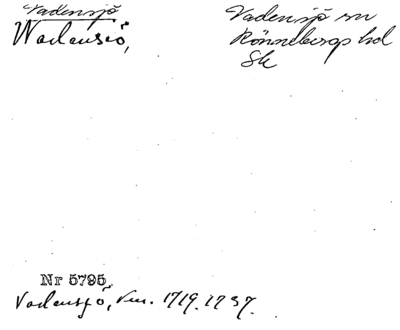 Vadensjö
Wadensiö,
Vadensjö sn
Rönnebergs hd
Sk
Nr 5795.
Vadensjö, Ven. 1719. 1737.